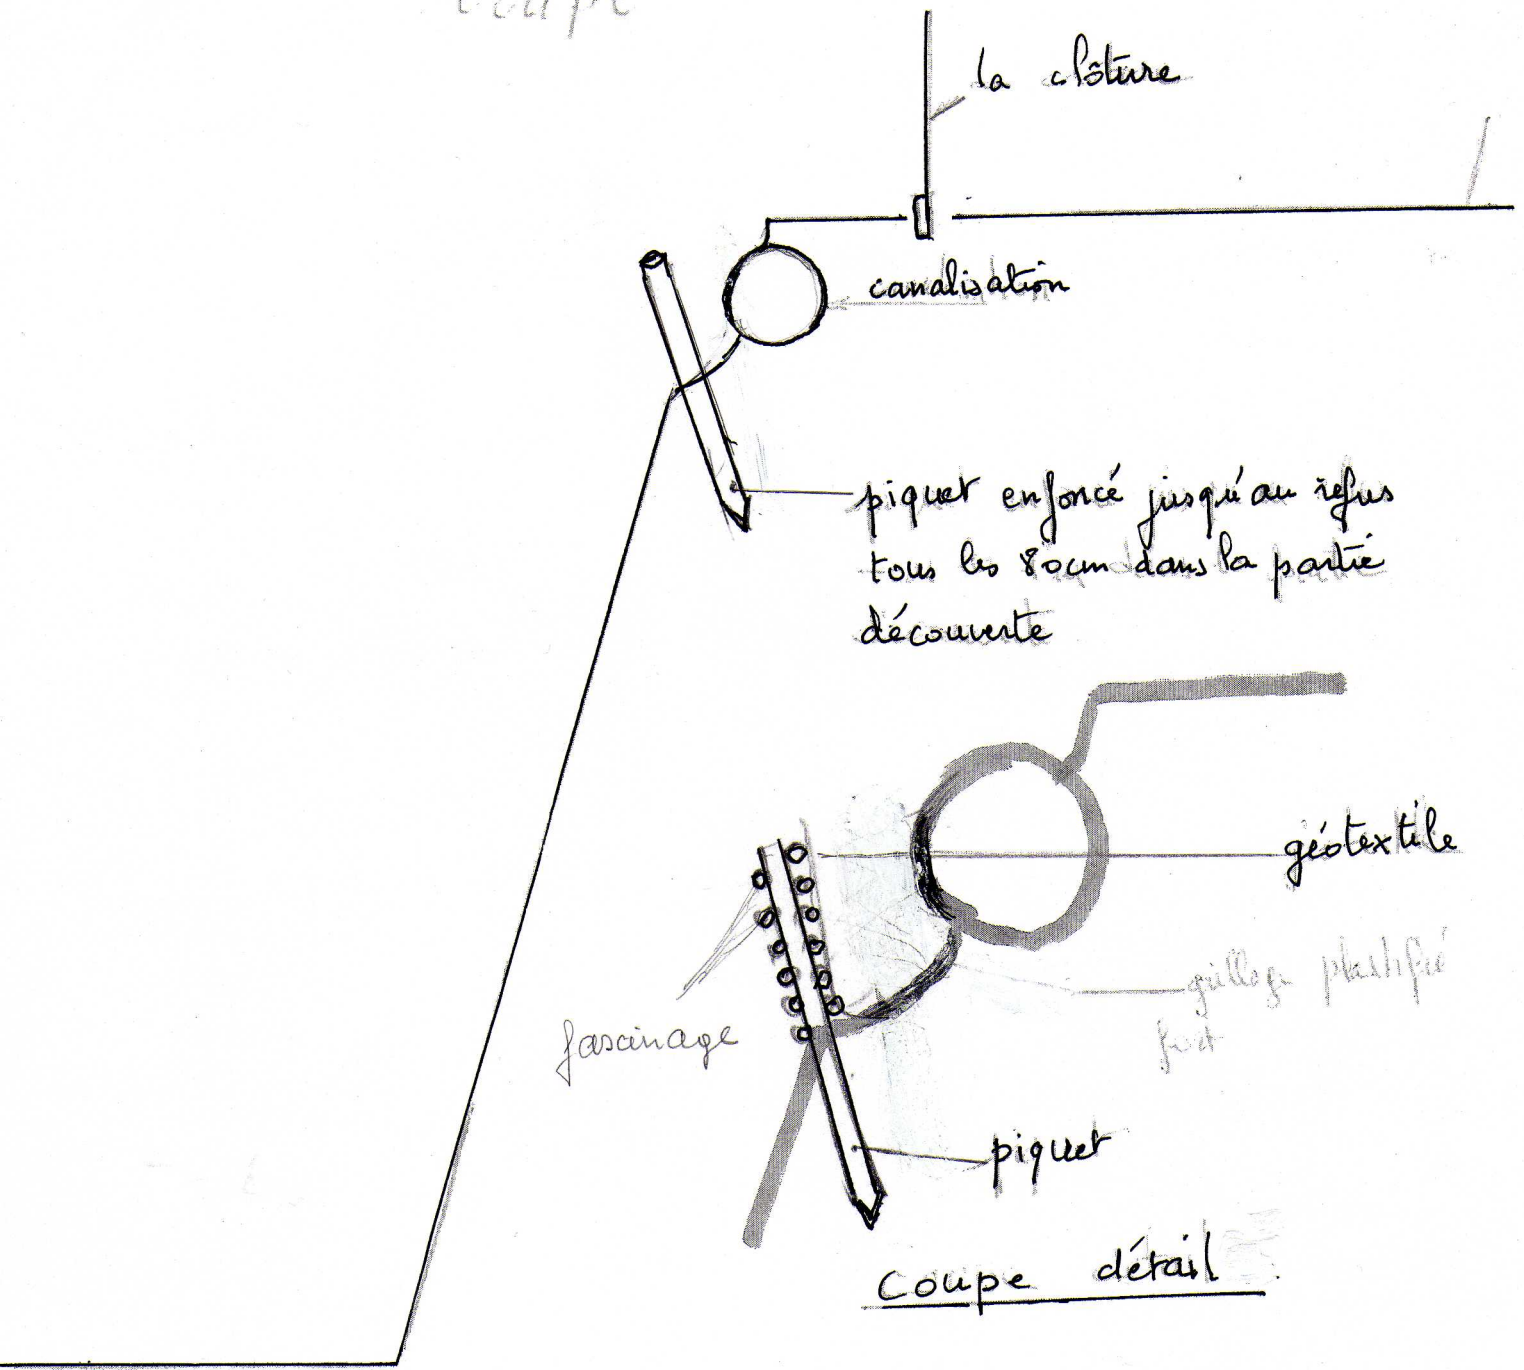 coupe
la clôture
canalisation
piquet enfoncé jusqu'au refus
tous les 80cm dans la partie
découverte
géotextile
grillage plastifié
fascinage
piquet
coupe détail